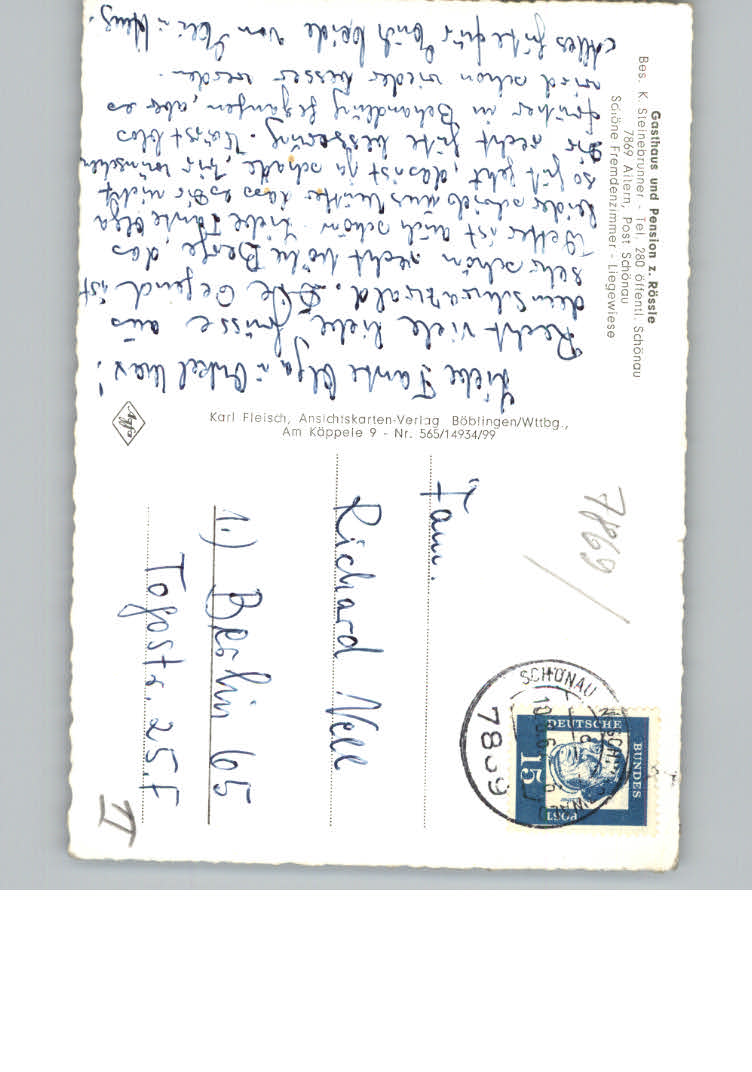 Gasthaus und Pension z. Rössle
Bes. K. Steinebrunner - Tel. 280 öffentl. Schönau
7869 Aitern, Post Schönau
Schöne Fremdenzimmer - Liegewiese
Liebe Tante Olga u. Onkel Max!
Recht viele liebe Grüsse aus
dem Schwarzwald. Die Gegend ist
sehr schön recht hohe Berge das
Wetter ist auch schön. Liebe Tante Olga
leider schrieb uns Mutter dass es Dir nicht
so gut geht, das ist ja schade, wir wünschen
Dir recht gute besserung. Wärst blos
früher in Behandlung gegangen, aber es
wird schon wieder besser werden.
Alles gute für Euch beide von
Karl Fleisch, Ansichtskarten-Verlag Böblingen/Wttbg.,
Am Käppele 9 - Nr. 565/14934/99
Agfa
7869
Fam.
Richard Nell
1.) Berlin 65
Togostr. 25.F
II
SCHÖNAU
7869
DEUTSCHE
BUNDES
POST
15